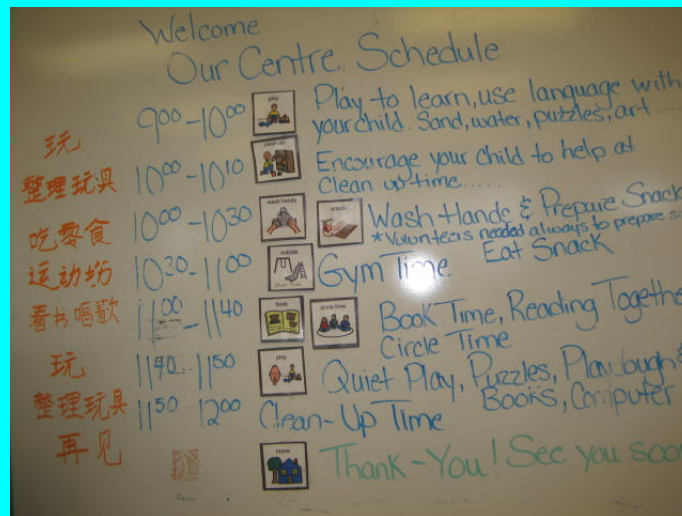 Welcome
Our Centre Schedule
玩 9⁰⁰-10⁰⁰ play Play to learn, use language with
your child. Sand, water, puzzles, art ....
整理玩具 10⁰⁰-10¹⁰ clean up Encourage your child to help at
Clean up time.....
吃零食 10⁰⁰-10³⁰ wash hands snack Wash Hands & Prepare Snack
*Volunteers needed always to prepare
Eat Snack
运动场 10³⁰-11⁰⁰ outside Gym Time
看书.唱歌 11⁰⁰-11⁴⁰ book circle time Book Time, Reading Together
Circle Time
玩 11⁴⁰-11⁵⁰ play Quiet Play, Puzzles, Playdough &
Books, Computer
整理玩具 11⁵⁰ 12⁰⁰ Clean-Up Time
再见 home Thank-You! See you soon